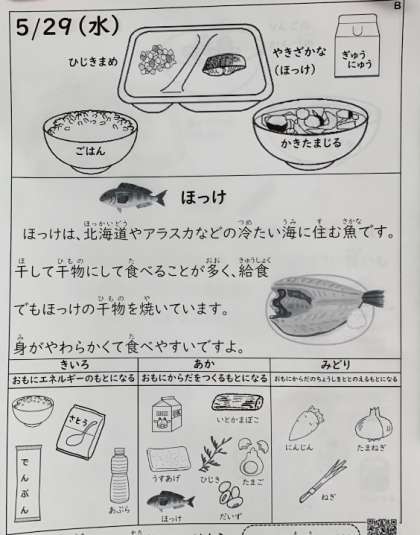 B
5/29(水)
ひじきまめ
やきざかな
(ほっけ)
ぎゅう
にゅう
ごはん
かきたまじる
ほっけ
ほっけは、北海道やアラスカなどの冷たい海に住む魚です。
干して干物にして食べることが多く、給食
でもほっけの干物を焼いています。
身がやわらかくて食べやすいですよ。
きいろ
あか
みどり
おもにエネルギーのもとになる
おもにからだをつくるもとになる
おもにからだのちょうしをととのえるもとになる
さとう
でんぷん
あぶら
いとかまぼこ
うすあげ
ひじき
たまご
ほっけ
だいず
にんじん
たまねぎ
ねぎ